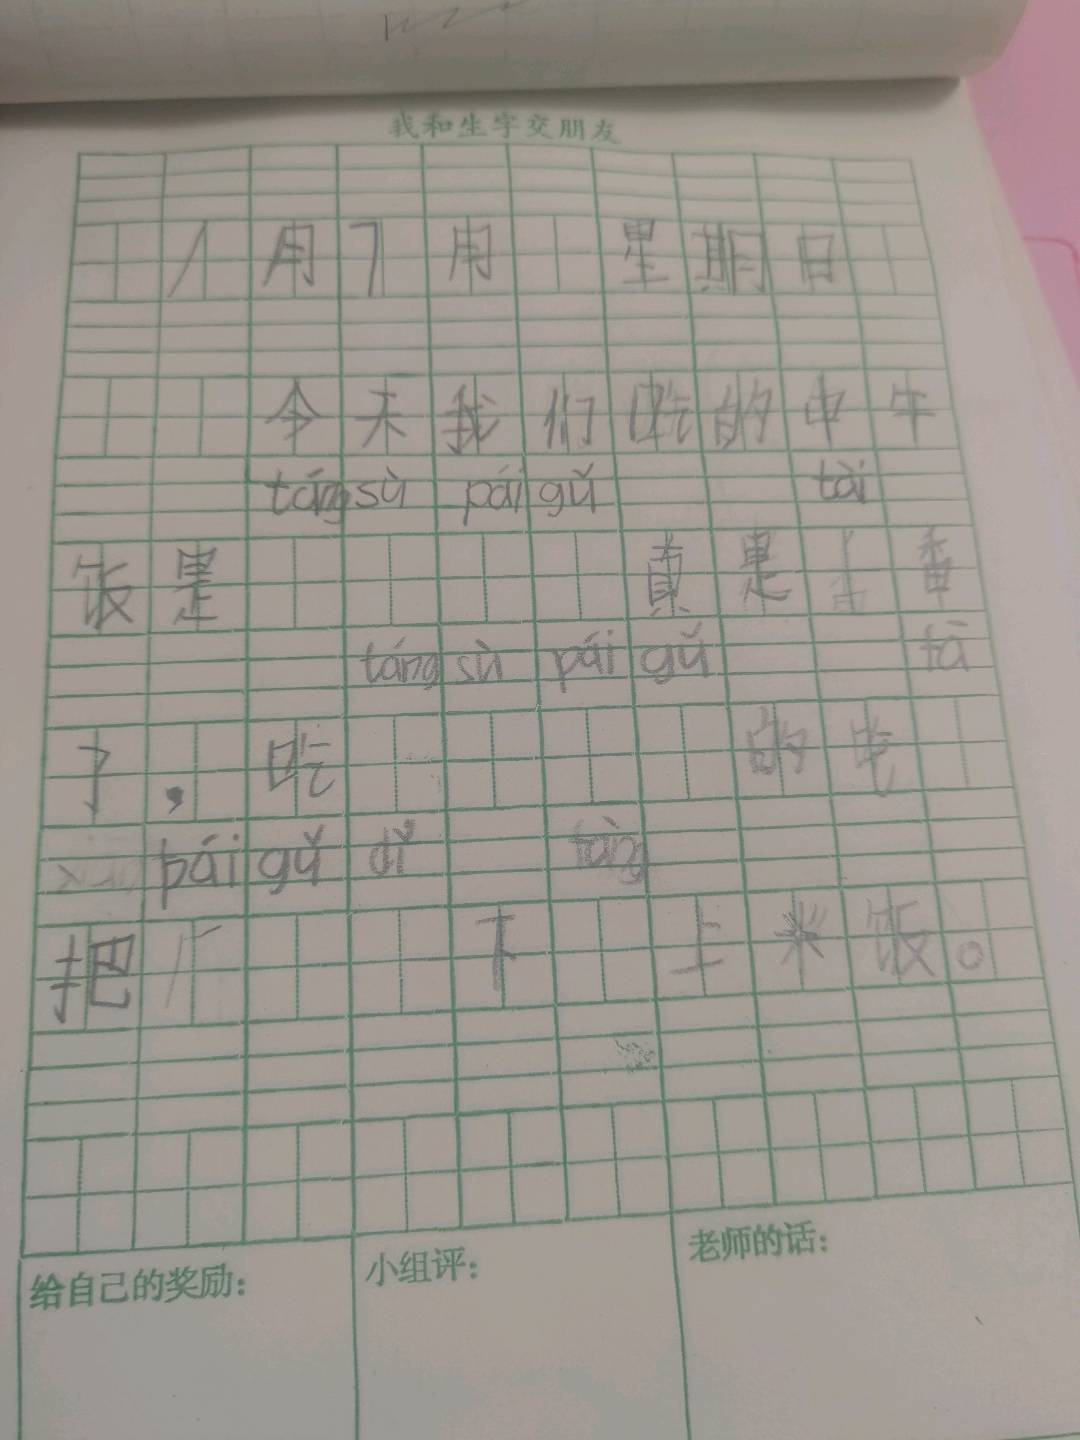 我和生字交朋友
1月7月 星期日
今天我们吃的中午
táng sù pái gǔ tài
饭是 真是 香
táng sù pái gǔ tā
了，吃 的吃
pái gǔ dǐ tàng
把 下 上米饭。
给自己的奖励： 小组评： 老师的话：